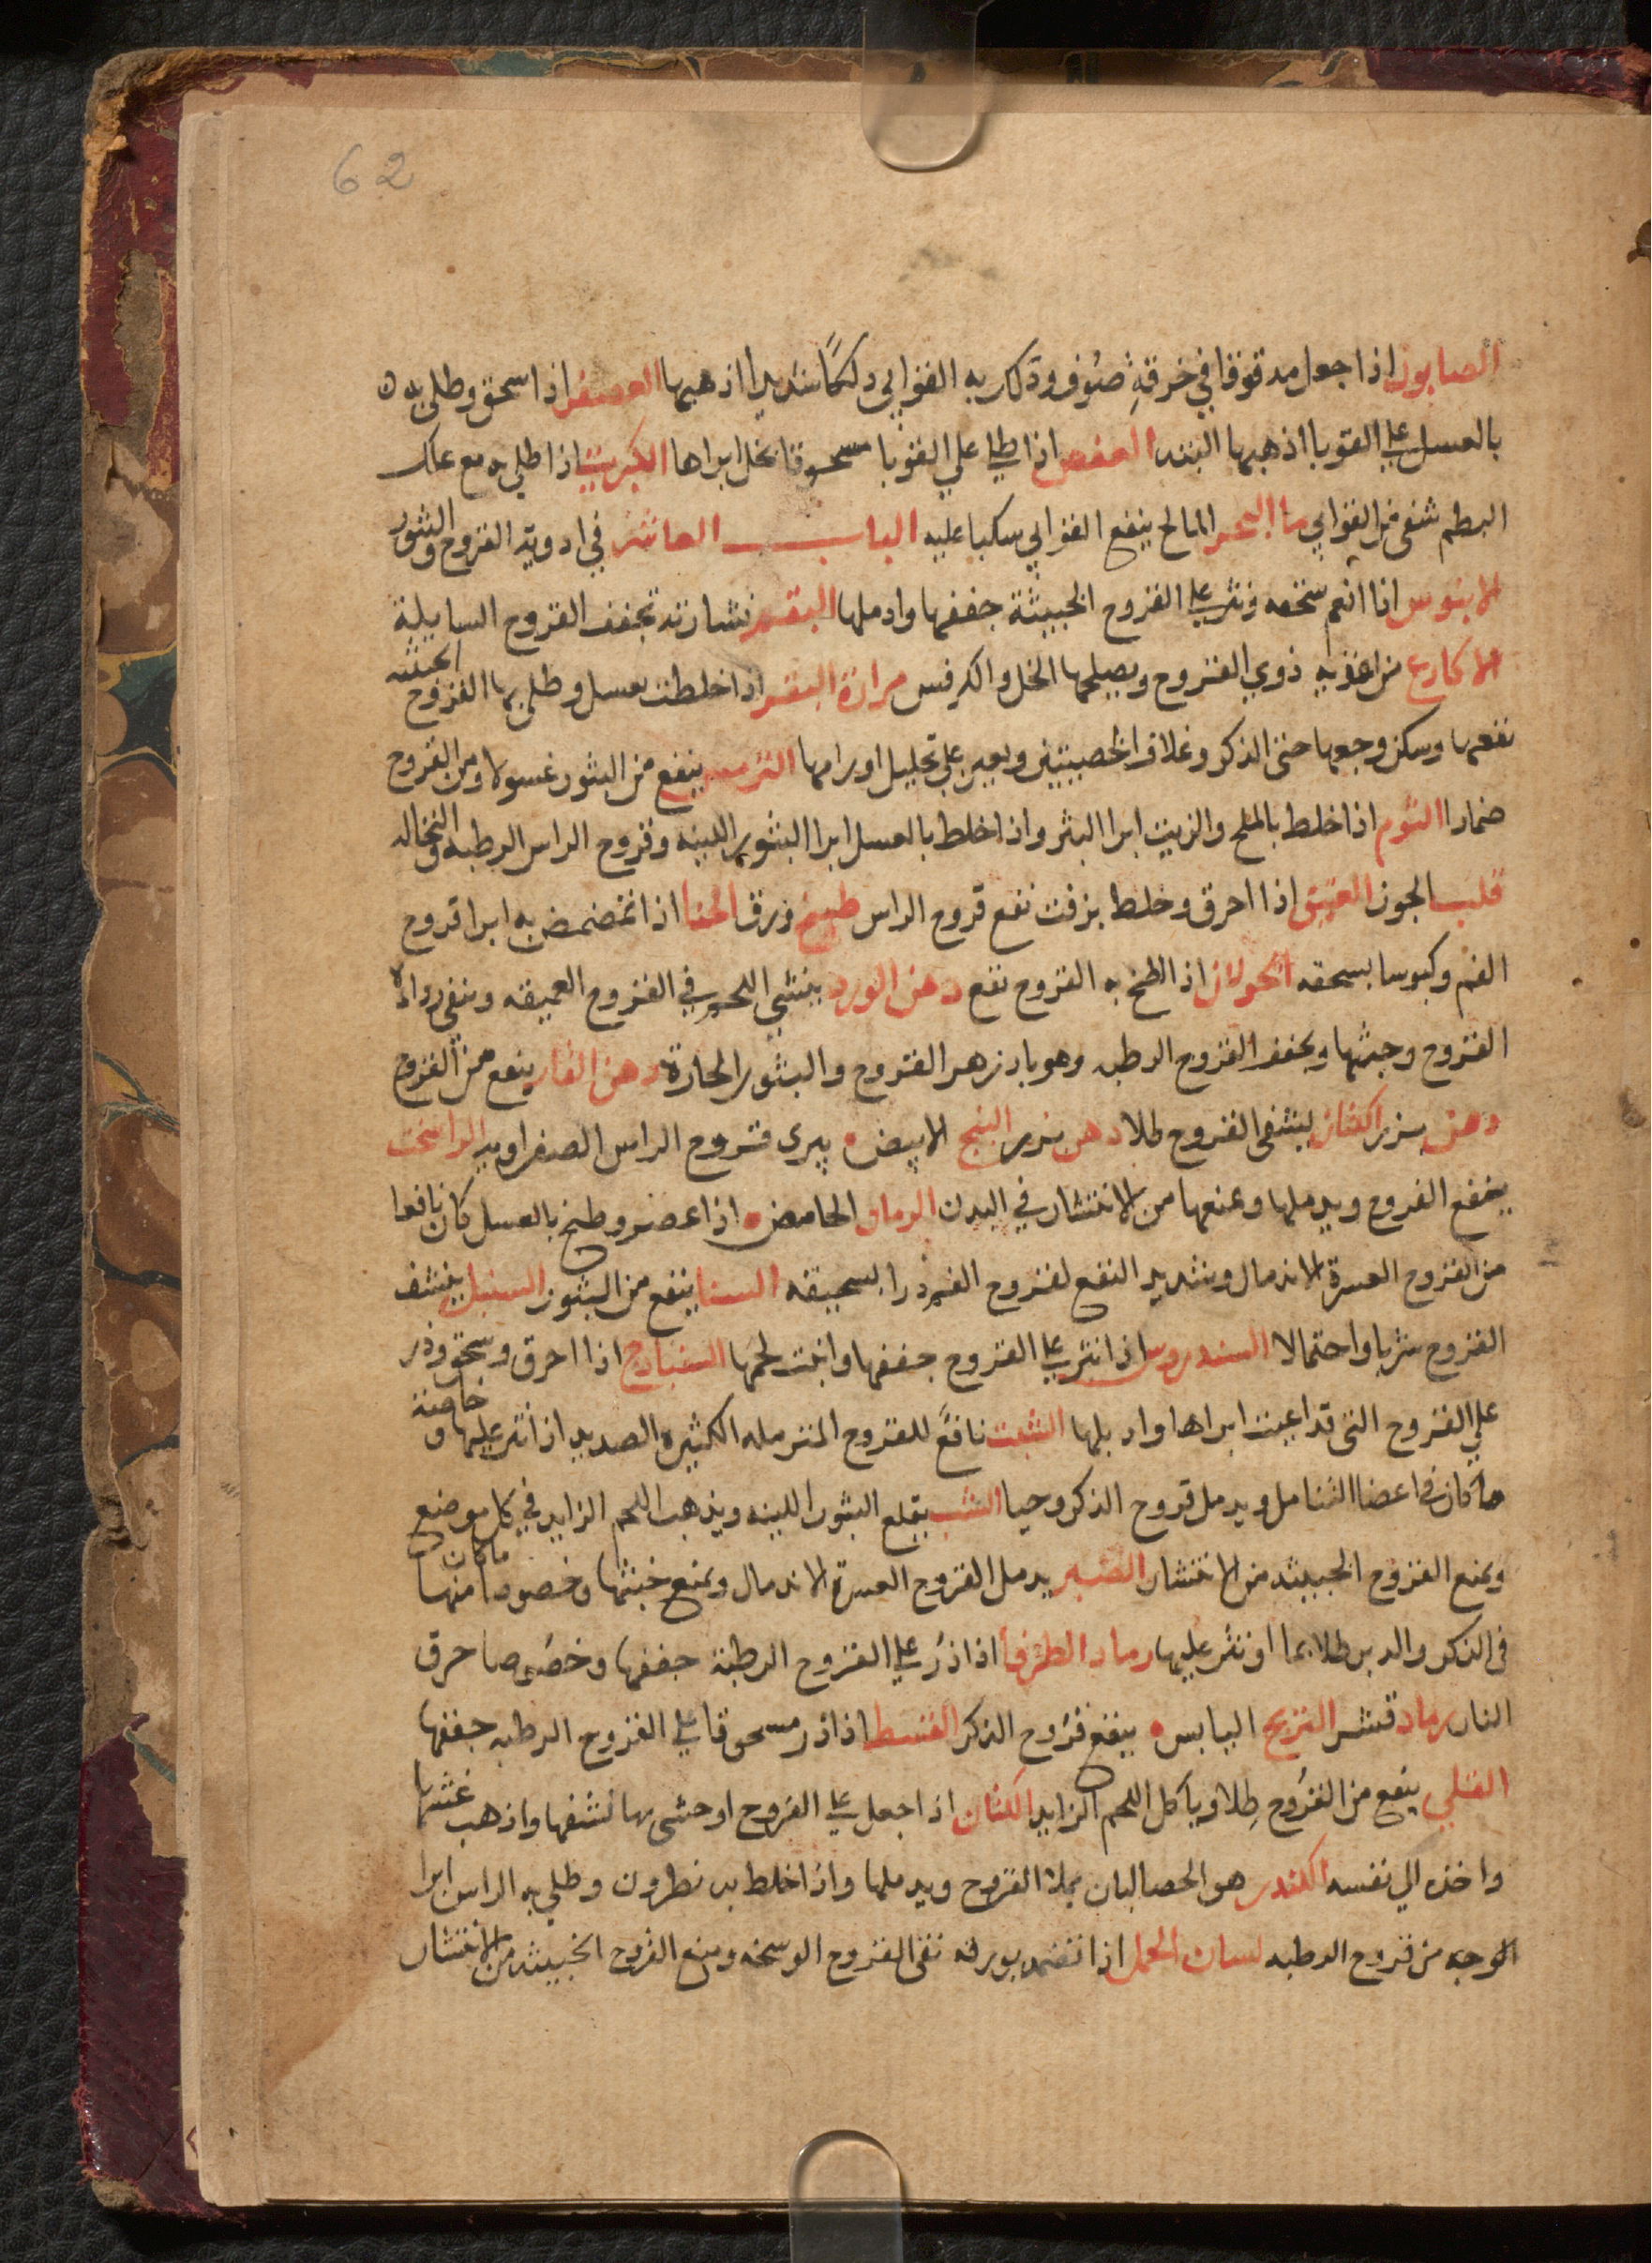 62
الصابون اذا جعل مدقوقا في خرقةٍ صوف ودلك به القوابي دلكًا شديدا اذهبها العصفر اذا سحق وطلي به
بالعسل علي القوبا اذهبها البته العفص اذا طلي علي القوبا مسحوقا بخل ابراها الكبريت اذا طلي به مع علك
البطم شفي من القوابي ما البحر المالح ينفع القوابي سكبا عليه الباب العاشر في ادوية القروح والبثور
الابنوس اذا انعم سحقه ونثر علي القروح الخبيثة جففها وادملها البقس نشارته تجفف القروح السايلة
الاكارع من اغذية ذوي القروح ويصلحها الخل والكرفس مرارة البقر اذا خلطت بعسل وطلي بها القروح الخبيثه
نفعها وسكن وجعها حتي الذكر وغلاف الخصيتين ويعين علي تحليل اورامها الترمس ينفع من البثور غسولا ومن القروح
ضمادا الثوم اذا خلط بالملح والزيت ابرا البثر واذا خلط بالعسل ابرا البثور اللبنيه وقروح الراس الرطبه والنخاله
قلب الجوز العتيق اذا احرق وخلط بزفت نفع قروح الراس طبيخ ورق الحنا اذا تمضمض به ابرا قروح
الفم وكبوسا بسحقه الخولان اذا لطخ به القروح نفع دهن الورد ينشي اللحم في القروح العميقه وينفي رداة
القروح وخبثها ويجفف القروح الرطبه وهو بادزهر القروح والبثور الحارة دهن الغار ينفع من القروح
دهن بزر الكتان ينشف القروح طلا دهن بزر البنج الابيض يبري قروح الراس الصفراويه الراسخت
ينفع القروح ويدملها ويمنعها من الانتشار في البدن الرمان الحامض اذا عصر وطبخ بالعسل كان نافعا
من القروح العسرة الاندمال وشديد النفع لقروح الفم ذرا بسحيقه السنا ينفع من البثور السنبل ينشف
القروح شربا واحتمالا السندروس اذا نثر علي القروح جففها وانبت لحمها السنبادج اذا احرق وسحق وذر
علي القروح التي قد اعيت ابراها وادملها الشبت نافعً للقروح المترهله الكثيرة الصديد اذا نثر عليها وخاصة
ما كان في اعضا التناسل ويدمل قروح الذكر وحيا الشب يقلع البثور اللبنيه ويذهب اللحم الزايد في كل موضع
ويمنع القروح الخبيثه من الانتشار الصبر يدمل القروح العسرة الاندمال ويمنع خبثها وخصوصا ما كان منها
في الذكر والدبر طلا بما او نثر عليها رماد الطرفا اذا ذر علي القروح الرطبة جففها وخصوصا حرق
النار رماد قشر القرع اليابس ينفع قروح الذكر القسط اذا ذر مسحوقا علي القروح الرطبه جففها
القلي ينفع من القروح طلا وياكل اللحم الزايد الكتان اذا جعل علي القروح او حشي بها نشفها واذهب غثها
واخذه الي نفسه الكندر هو الحصالبان يملا القروح ويدملها واذا خلط به نطرون وطلي به الراس ابرا
الوجه من قروح الرطبه لسان الحمل اذا تضمد بورقه نقي القروح الوسخه ومنع القروح الخبيثه من الانتشار